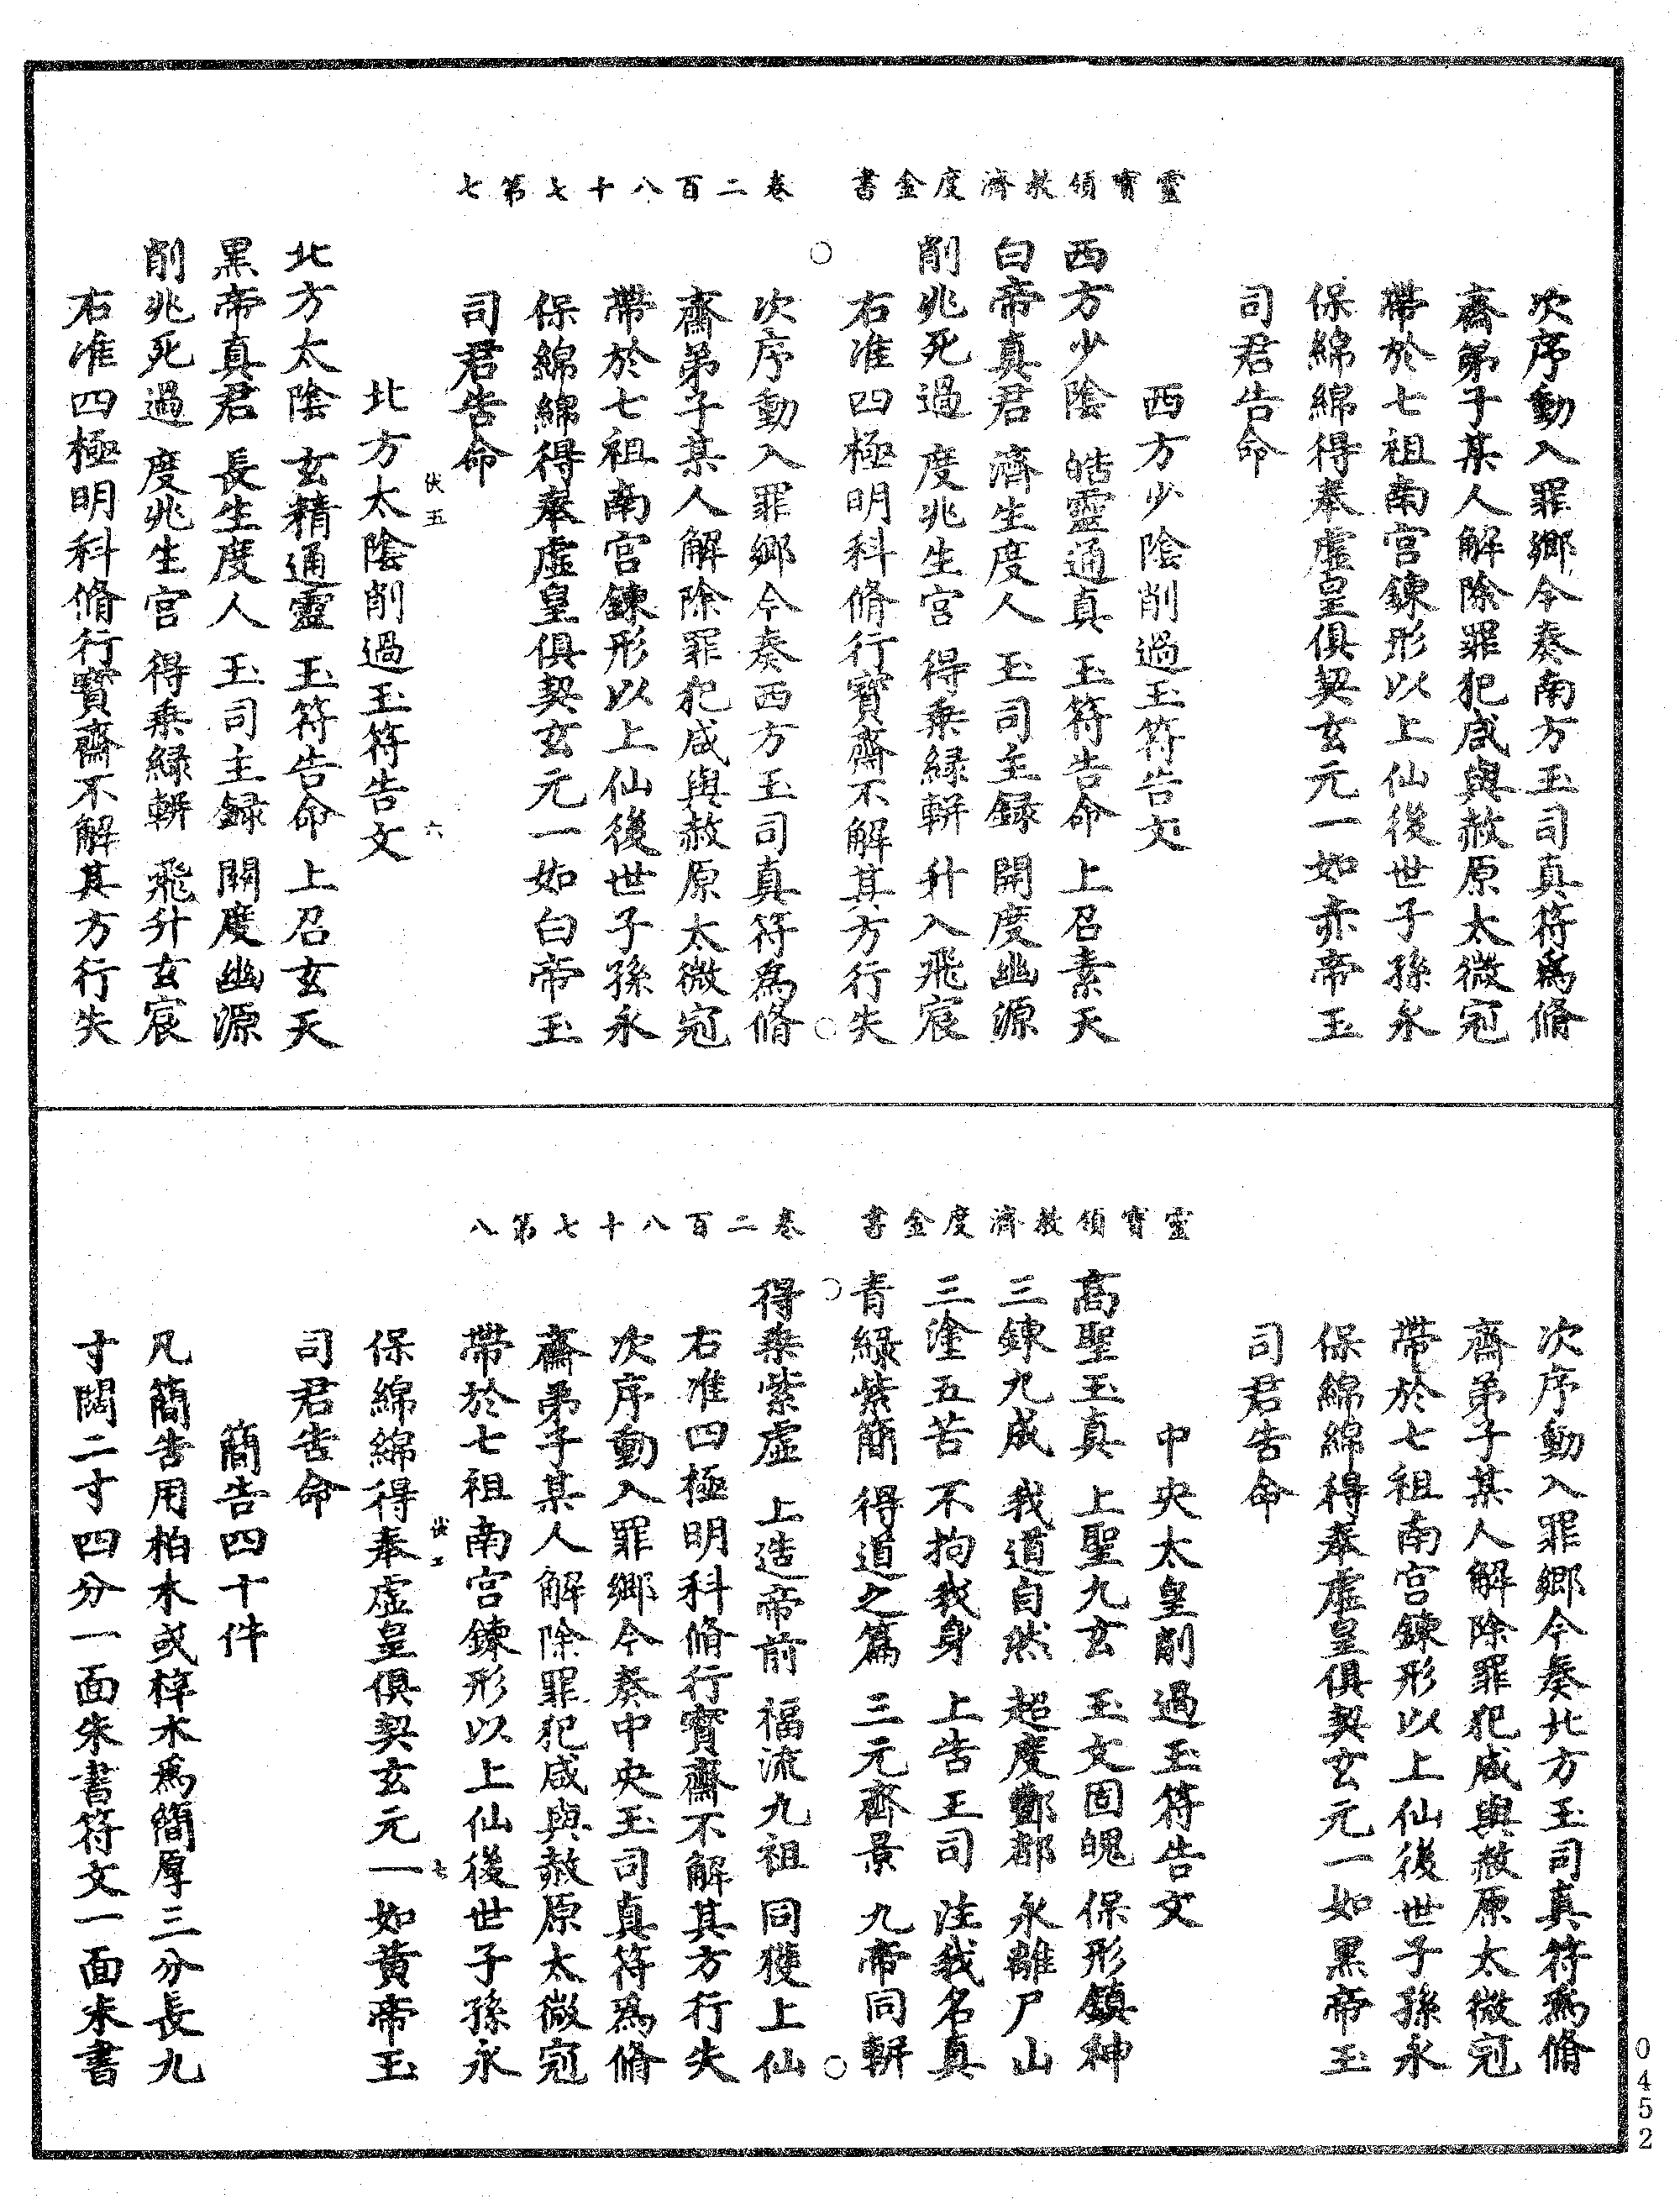 靈寶領教濟度金書　卷二百八十七第七
次序動入罪鄉今奏南方玉司真符為脩
齋弟子某人解除罪犯咸與赦原太微冠
帶於七祖南宮鍊形以上仙後世子孫永
保綿綿得奉虛皇俱契玄元一如赤帝玉
司君告命
西方少陰削過玉符告文
西方少陰　皓靈通真　玉符告命　上召素天
白帝真君　濟生度人　玉司主録　開度幽源
削兆死過　度兆生宮　得乗緑輧　升入飛宸
右准四極明科脩行寶齋不解其方行失
次序動入罪鄉今奏西方玉司真符為脩
齋弟子某人解除罪犯咸與赦原太微冠
帶於七祖南宮鍊形以上仙後世子孫永
保綿綿得奉虛皇俱契玄元一如白帝玉
司君告命
伏五　六
北方太陰削過玉符告文
北方太陰　玄精通靈　玉符告命　上召玄天
黒帝真君　長生度人　玉司主録　開度幽源
削兆死過　度兆生宮　得乗緑輧　飛升玄宸
右准四極明科脩行寶齋不解其方行失
靈寶領教濟度金書　卷二百八十七第八
次序動入罪鄉今奏北方玉司真符為脩
齊弟子某人解除罪犯咸與赦原太微冠
帶於七祖南宮鍊形以上仙後世子孫永
保綿綿得奉虛皇俱契玄元一如黒帝玉
司君告命
中央太皇削過玉符告文
高聖玉真　上聖九玄　玉文固魄　保形鎮神
三鍊九成　我道自然　超度酆都　永離尸山
三塗五苦　不拘我身　上告玉司　注我名真
青緑紫簡　得道之篇　三元齊景　九帝同輧
得乗紫虛　上造帝前　福流九祖　同獲上仙
右准四極明科脩行寶齋不解其方行失
次序動入罪鄉今奏中央玉司真符為脩
齋弟子某人解除罪犯咸與赦原太微冠
帶於七祖南宮鍊形以上仙後世子孫永
伏五　七
保綿綿得奉虛皇俱契玄元一如黃帝玉
司君告命
簡告四十件
凡簡告用柏木或梓木為簡厚三分長九
寸闊二寸四分一面朱書符文一面朱書
0452